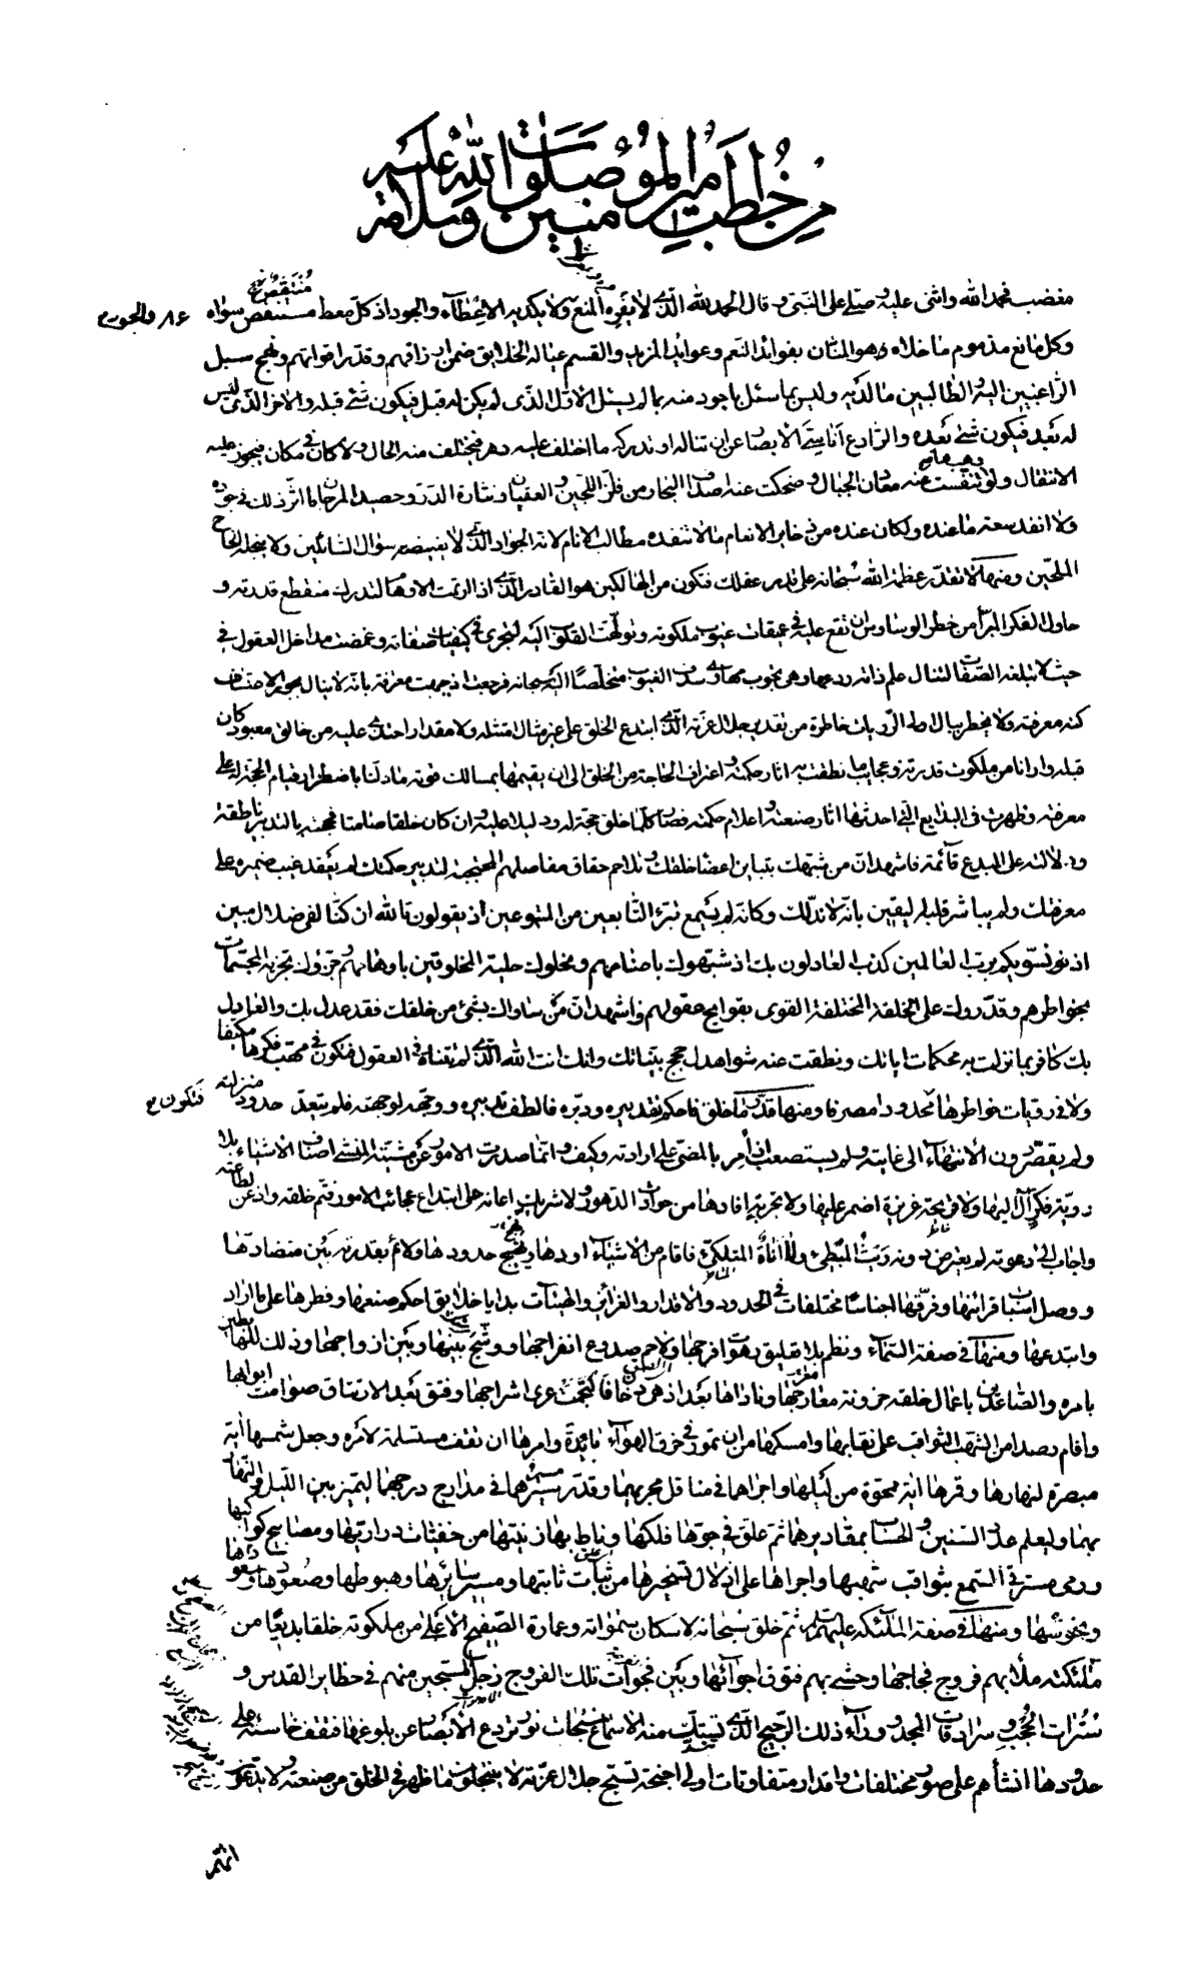 من خطب امير المؤمنين صلوات الله عليه وسلامه
مغضب فحمد الله واثنى عليه وصلى على النبي وقال الحمد لله الذي لا يفره المنع ولا يكديه الاعطاء والجود اذ كل معط منتقص سواه
وكل مانع مذموم ما خلاه وهو المنان بفوائد النعم وعوائد المزيد والقسم عياله الخلايق ضمن ارزاقهم وقدر اقواتهم ونهج سبيل
الراغبين اليه والطالبين ما لديه وليس بما سئل باجود منه بما لم يسئل الاول الذي لم يكن له قبل فيكون شئ قبله والاخر الذي ليس
له بعد فيكون شئ بعده والرادع اناسي الابصار عن ان تناله او تدركه ما اختلف عليه دهر فيختلف منه الحال ولا كان في مكان فيجوز عليه
الانتقال ولو وهب ما تنفست عنه معادن الجبال وضحكت عنه اصداف البحار من فلز اللجين والعقيان ونثارة الدر وحصيد المرجان ما اثر ذلك في جوده
ولا انفد سعة ما عنده ولكان عنده من ذخاير الانعام ما لا تنفده مطالب الانام لانه الجواد الذي لا يغيضه سؤال السائلين ولا يبخله الحاح
الملحين ومنها لا تقدر عظمة الله سبحانه على قدر عقلك فتكون من الهالكين هو القادر الذي اذا ارتمت الاوهام لتدرك منقطع قدرته و
حاول الفكر المبرأ من خطر الوساوس ان تقع عليه في عميقات غيوب ملكوته وتولهت القلوب اليه لتجرى في كيفيات صفاته وغمضت مداخل العقول في
حيث لا تبلغه الصفات لتنال علم ذاته ردعها وهي تجوب مهاوي سدف الغيوب متخلصا اليه سبحانه فرجعت اذ جبهت معرفة بانه لا ينال بجور الاعتساف
كنه معرفته ولا يخطر ببال اولي الرويات خاطرة من تقدير جلال عزته الذي ابتدع الخلق على غير مثال امتثله ولا مقدار احتذى عليه من خالق معبود كان
قبله وارانا من ملكوت قدرته وعجايب ما نطقت به اثار حكمته واعتراف الحاجة من الخلق الى ان يقيمها بمساك قوته ما دلنا باضطرار قيام الحجة له على
معرفته وظهرت في البدايع التي احدثها اثار صنعته واعلام حكمته فصار كلما خلق حجة له ودليلا عليه وان كان خلقا صامتا فحجته بالتدبير ناطقة
ودلالته على المبدع قائمة فاشهد ان من شبهك بتباين اعضا خلقك وتلاحم حقاق مفاصلهم المحتجبة لتدبير حكمتك لم يعقد غيب ضميره على
معرفتك ولم يباشر قلبه اليقين بانه لا ند لك وكانه لم يسمع تبرؤ التابعين من المتبوعين اذ يقولون تالله ان كنا لفي ضلال مبين
اذ نسويكم برب العالمين كذب العادلون بك اذ شبهوك باصنامهم ونحلوك حلية المخلوقين باوهامهم وجزؤك تجزية المجسمات
بخواطرهم وقدروك على الخلقة المختلفة القوى بقرايح عقولهم واشهد ان من ساواك بشئ من خلقك فقد عدل بك والعادل
بك كافر بما تنزلت به محكمات اياتك ونطقت عنه شواهد حجج بيناتك وانك انت الله الذي لم تتناه في العقول فتكون في مهب فكرها مكيفا
ولا في رويات خواطرها محدودا مصرفا ومنها قدر ما خلق فاحكم تقديره ودبره فالطف تدبيره ووجهه لوجهته فلم يتعد حدود منزلته
ولم يقصر دون الانتهاء الى غايته ولم يستصعب اذ امر بالمضي على ارادته وكيف وانما صدرت الامور عن مشيته المنشئ اصناف الاشياء بلا
روية فكر آل اليها ولا قريحة غريزة اضمر عليها ولا تجربة افادها من حوادث الدهور ولا شريك اعانه على ابتداع عجائب الامور فتم خلقه واذعن لطاعته
واجاب الى دعوته لم يعترض دونه ريث المبطئ ولا اناة المتلكئ فاقام من الاشياء اودها ونهج حدودها ولائم بقدرته بين متضادها
ووصل اسباب قرائنها وفرقها اجناسا مختلفات في الحدود والاقدار والغرائز والهيئات بدايا خلايق احكم صنعها وفطرها على ما اراد
وابتدعها ومنها في صفة السماء ونظم بلا تعليق رهوات فرجها ولاحم صدوع انفراجها ووشج بينها وبين ازواجها وذلل للهابطين
بامره والصاعدين باعمال خلقه حزونة معراجها وناداها بعد اذ هي دخان فالتحمت عرى اشراجها وفتق بعد الارتتاق صوامت ابوابها
واقام رصدا من الشهب الثواقب على نقابها وامسكها من ان تمور في خرق الهواء بايده وامرها ان تقف مستسلمة لامره وجعل شمسها اية
مبصرة لنهارها وقمرها اية ممحوة من ليلها واجراهما في مناقل مجريهما وقدر سيرهما في مدارج درجهما ليتميز بين الليل والنهار
بهما وليعلم عدد السنين والحساب بمقاديرهما ثم علق في جوها فلكها وناط بها زينتها من خفيات دراريها ومصابيح كواكبها
ورمى مسترقي السمع بثواقب شهبها واجراها على اذلال تسخيرها من ثبات ثابتها ومسير سائرها وهبوطها وصعودها وسعودها
ونحوسها ومنها في صفة الملائكة عليهم السلم ثم خلق سبحانه لاسكان سمواته وعمارة الصفيح الاعلى من ملكوته خلقا بديعا من
ملائكته ملأ بهم فروج فجاجها وحشى بهم فتوق اجوائها وبين فجوات تلك الفروج زجل المسبحين منهم في حظاير القدس و
سترات الحجب وسرادقات المجد ووراء ذلك الرجيج الذي تستك منه الاسماع سبحات نور تردع الابصار عن بلوغها فتقف خاسئة على
حدودها انشأهم على صور مختلفات واقدار متفاوتات اولي اجنحة تسبح جلال عزته لا ينتحلون ما ظهر في الخلق من صنعته ولا يدعون
انهم